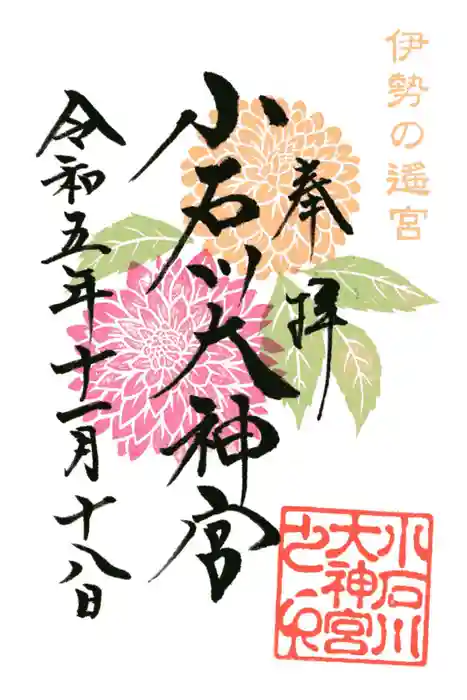 伊勢の遥宮
奉拝
小石川大神宮
令和五年十一月十八日
小石川
大神宮
之印